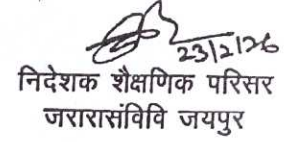 23/2/26
निदेशक शैक्षणिक परिसर
जरारासंविवि जयपुर